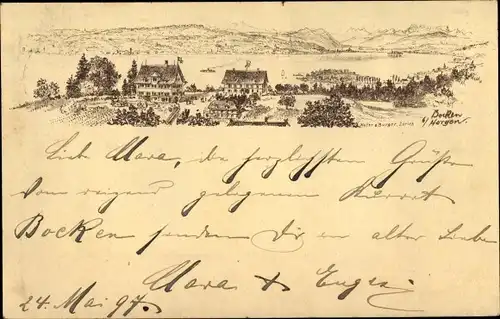 Bocken
b/ Horgen.
Hofer & Burger, Zürich
Liebe Clara, die herzlichsten Grüße
vom reizend gelegenen
Bocken senden Dir in alter Liebe
Clara + Eugen
24. Mai 97.